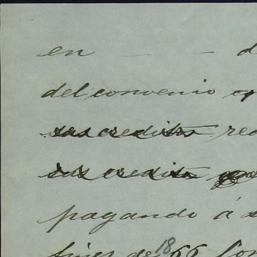 en — — d
del convenio
sus creditos rec
sus credito
pagando á s
fines de 1866